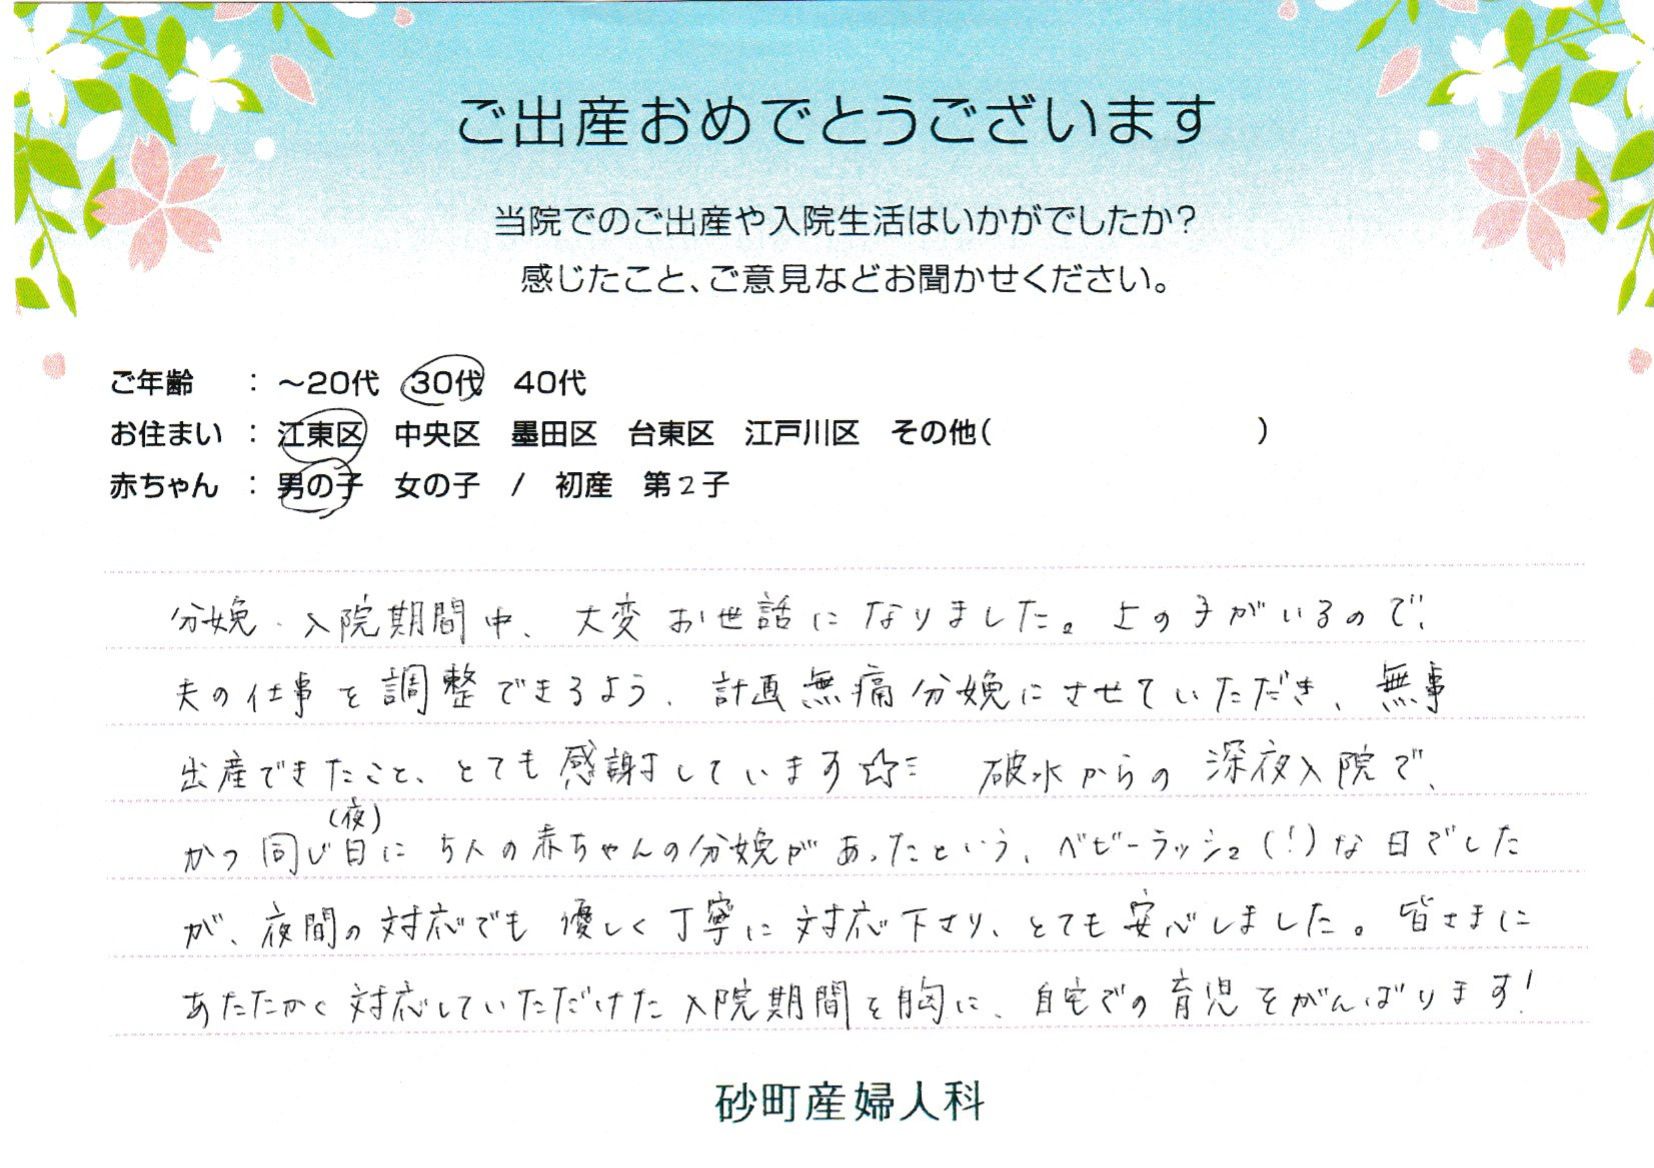 ご出産おめでとうございます
当院でのご出産や入院生活はいかがでしたか？
感じたこと、ご意見などお聞かせください。
ご年齢 ： ～20代 30代 40代
お住まい ： 江東区 中央区 墨田区 台東区 江戸川区 その他（ ）
赤ちゃん ： 男の子 女の子 / 初産 第2子
分娩・入院期間中、大変お世話になりました。上の子がいるので、
夫の仕事を調整できるよう、計画無痛分娩にさせていただき、無事
出産できたこと、とても感謝しています☆ミ 破水からの深夜入院で、
(夜)
かつ同じ日に5人の赤ちゃんの分娩があったという、ベビーラッシュ(！)な日でした
が、夜間の対応でも優しく丁寧に対応下さり、とても安心しました。皆さまに
あたたかく対応していただけた入院期間を胸に、自宅での育児をがんばります！
砂町産婦人科